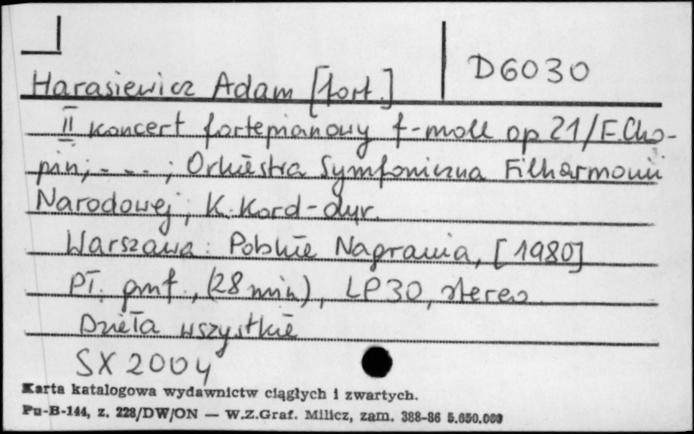 D6030
Harasiewicz Adam [fort.]
II koncert fortepianowy f-moll op 21/F.Cho-
pin; - - - ; Orkiestra Symfoniczna Filharmonii
Narodowej; K. Kord-dyr.
Warszawa: Polskie Nagrania, [1980]
Pł. gmf., (28 min), LP30, stereo
Dzieła wszystkie
SX 2004
Karta katalogowa wydawnictw ciągłych i zwartych.
Pu-B-144, z. 228/DW/ON — W.Z.Graf. Milicz, zam. 388-86 5.650.000